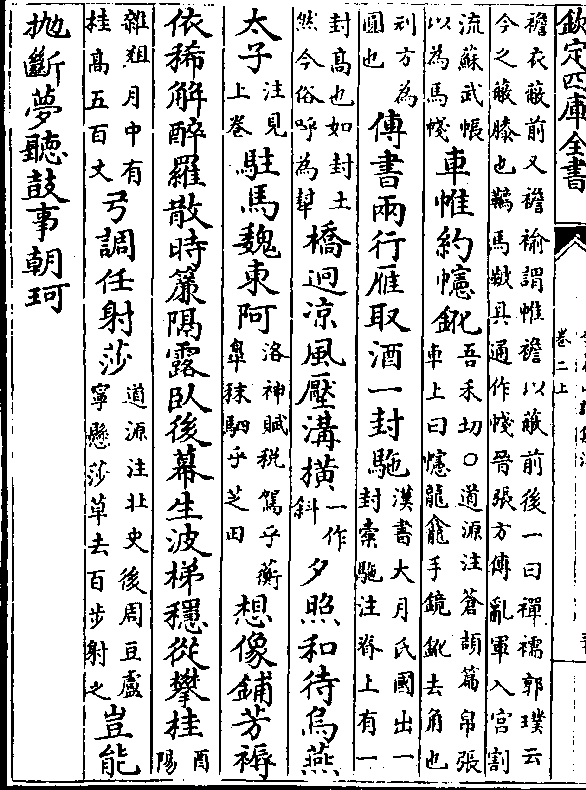 欽定四庫全書
卷二上
襜衣蔽前又襜褕謂帷襜以蔽前後一曰襌襦郭璞云
今之蔽膝也韉馬鞁具通作帴晉張方傳亂軍入宫割
流蘇武帳
以為馬帴
車帷約幰鈋
吾禾切○道源注蒼頡篇帛張
車上曰幰龍龕手鏡鈋去角也
刓方為
圓也
傳書兩行雁取酒一封駞
漢書大月氏國出一
封槖駞注脊上有一
封高也如封土
然今俗呼為犎
橋迥涼風壓溝橫
一作
斜
夕照和待烏燕
太子
注見
上卷
駐馬魏東阿
洛神賦税駕乎蘅
臯秣駟乎芝田
想像鋪芳褥
依稀解醉羅散時簾隔露臥後幕生波梯穩從攀桂
酉
陽
雜俎月中有
桂高五百丈
弓調任射莎
道源注北史後周豆盧
寧懸莎草去百步射之
豈能
抛斷夢聽鼓事朝珂